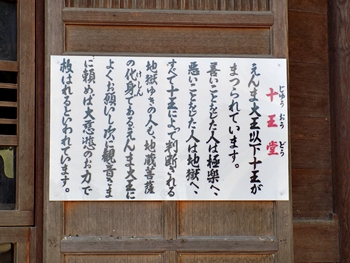 十王堂
じゅう おう どう
えんま大王以下十王が
まつられています。
善いことをした人は極楽へ、
悪いことをした人は地獄へ、
すべて十王によって判断される
地獄ゆきの人も、地蔵菩薩
の化身であるえんま大王に
けしん
よくお願いし次に観音さま
に頼めば大慈悲のお力で
救われるといわれています。